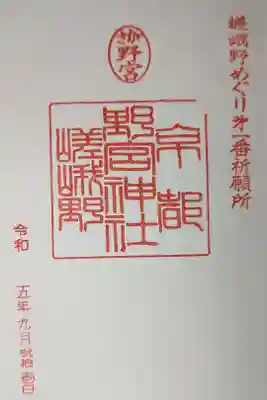 嵯峨野めぐり㐧一番祈願所
野宮
京都
野宮神社
嵯峨野
令和 五年九月弐拾壱日